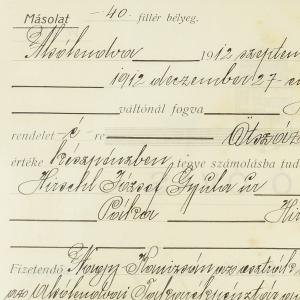 Másolat -40.- fillér bélyeg.
Alsólendva 1912 szeptem
1912 deczember 27-én
váltónál fogva
rendelet é re Ötszáz
értéke készpénzben, tegye számolásba tud
Hirschl József Gyula úr
Pálka Hir
Fizetendő Nagy Kanizsán az osztrák
az Alsólendvai Takarékpénztár